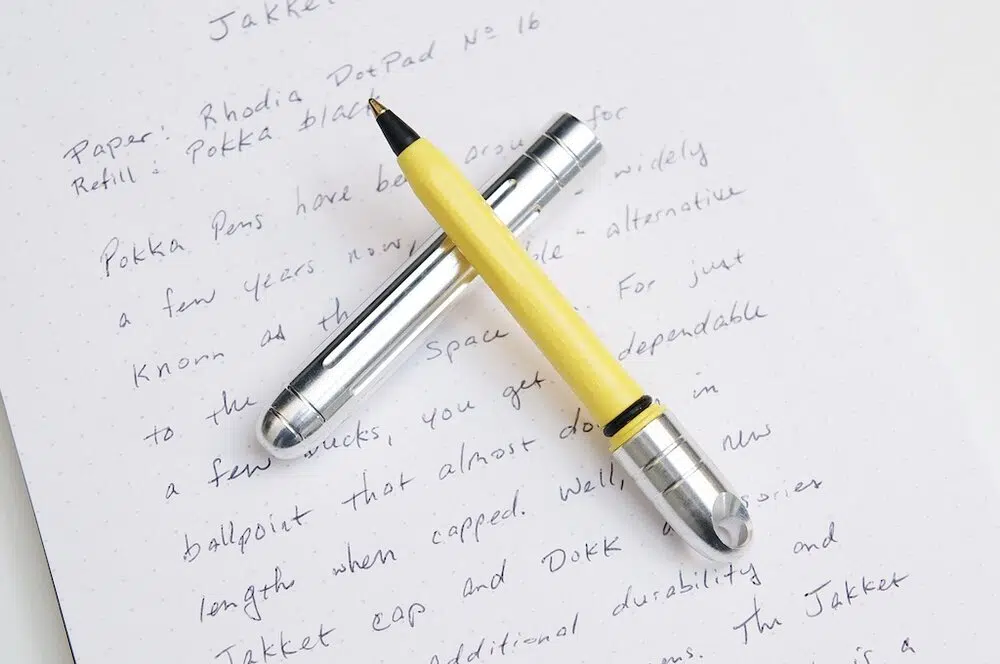 Jakket
Paper: Rhodia DotPad Nº 16
Refill: Pokka black
Pokka Pens have been around for
a few years now, widely
known as the alternative
to the Space For just
a few bucks, you get dependable
ballpoint that almost in
length when capped. Well, new
Jakket cap and Dokk
additional durability and
The Jakket
is a